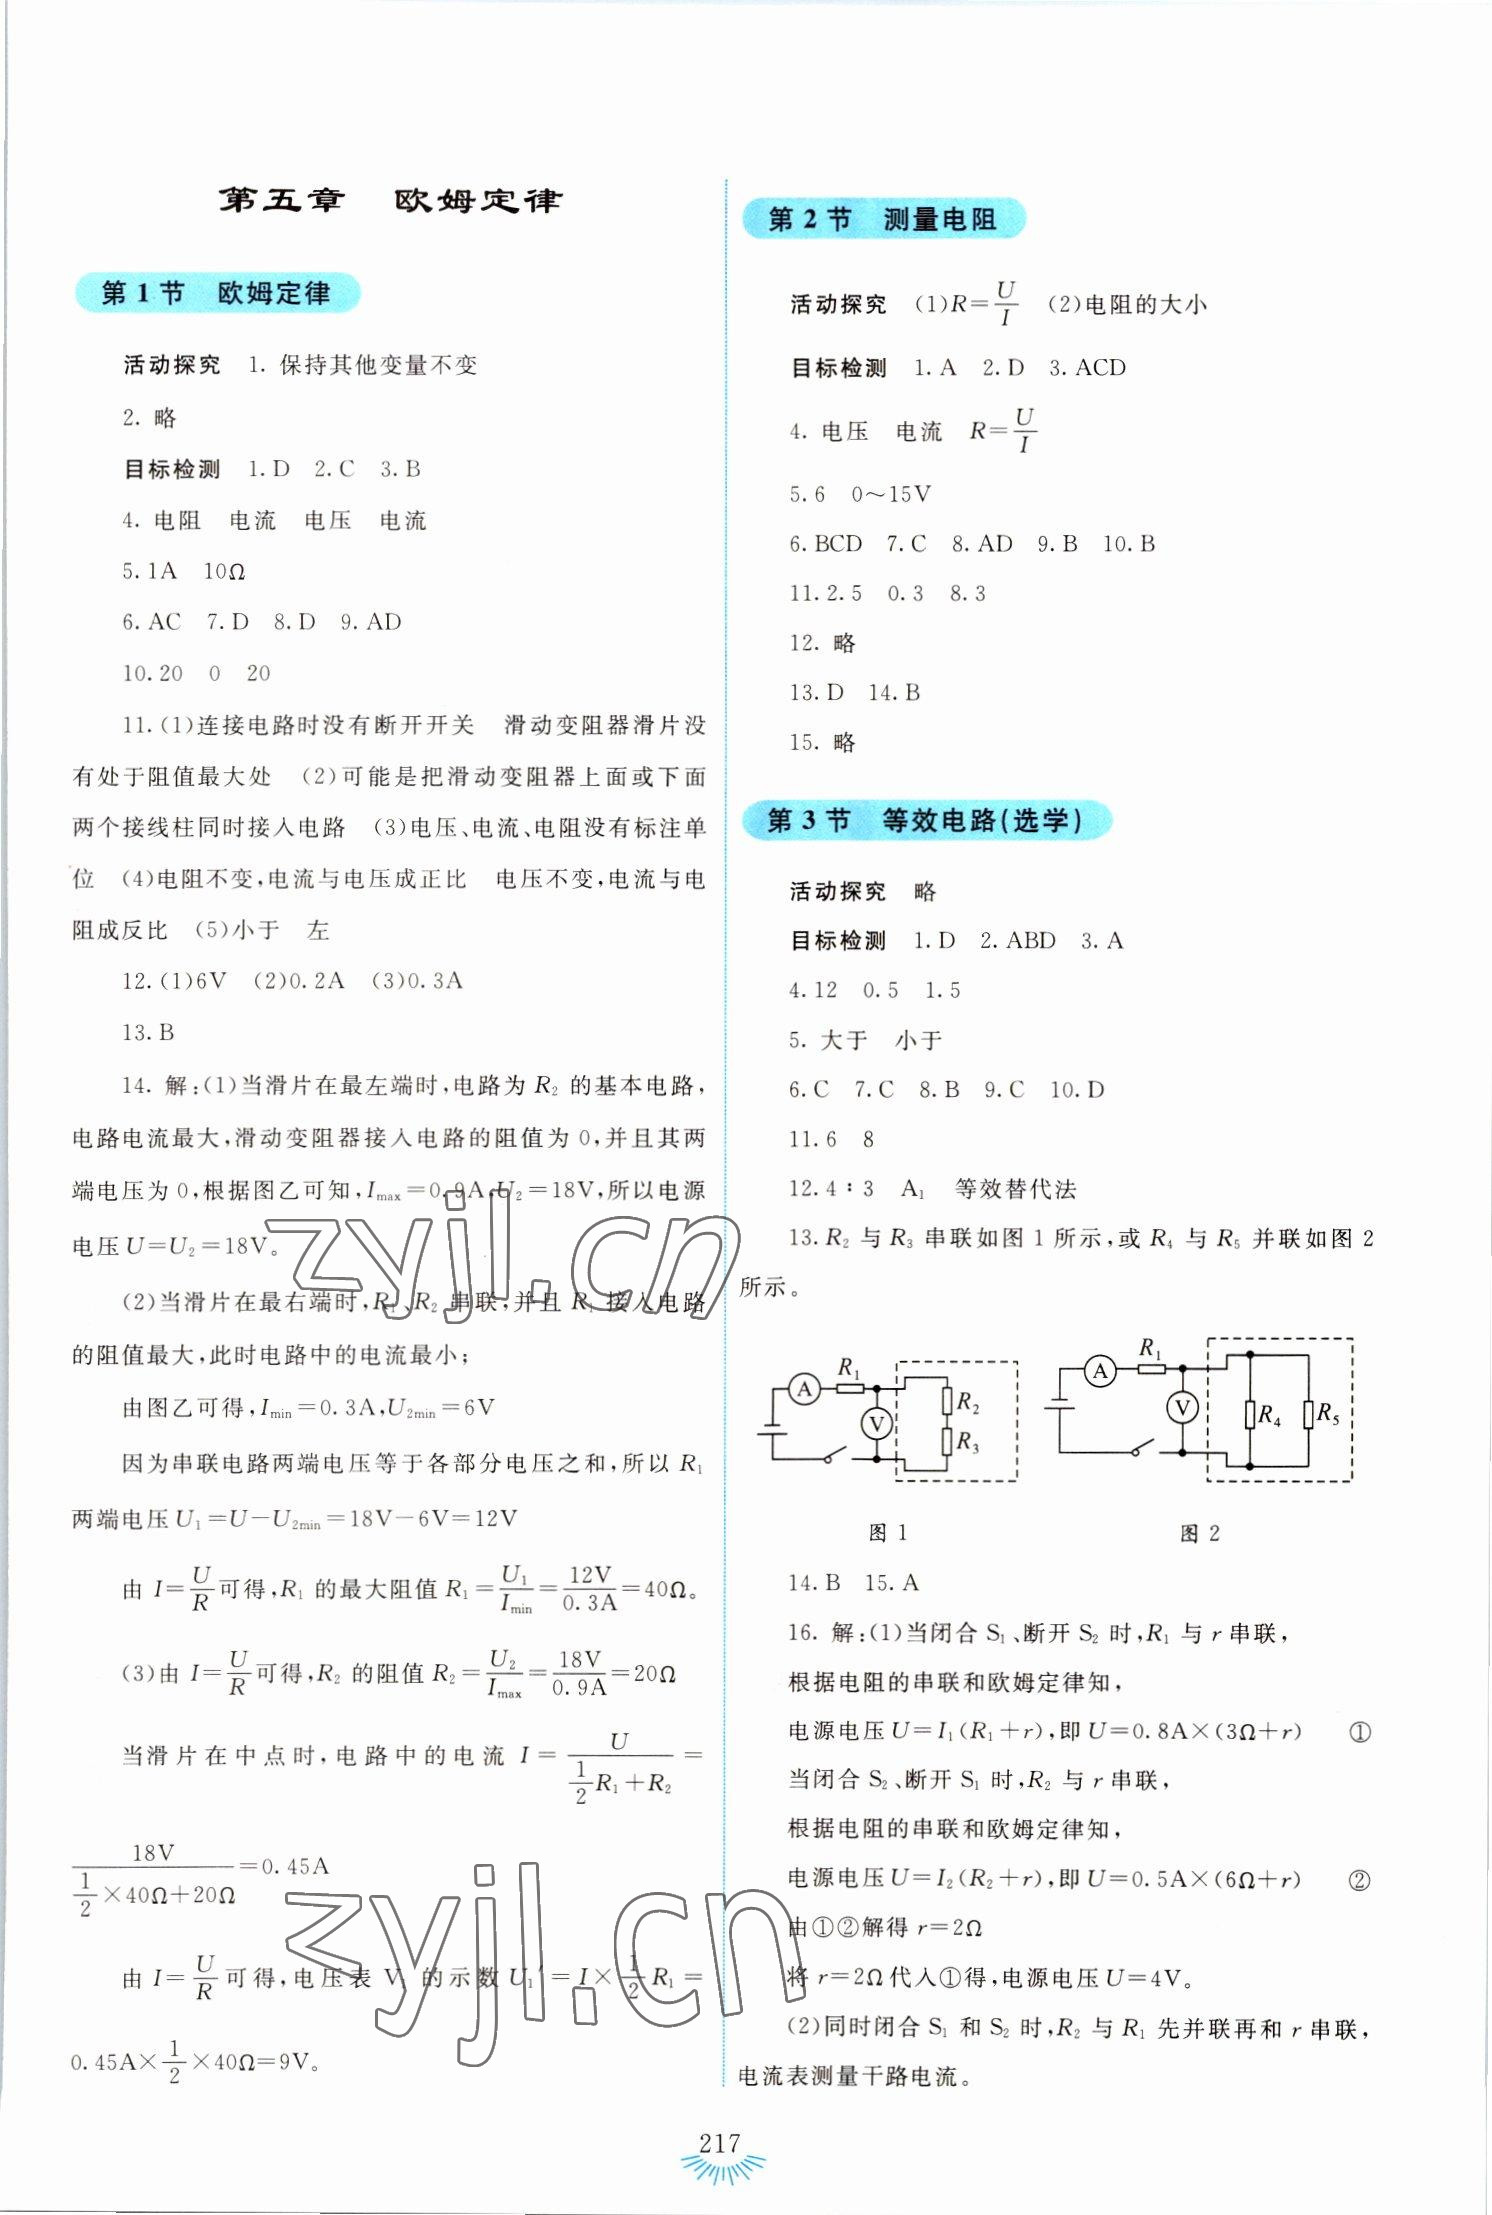 第五章　欧姆定律
第 1 节　欧姆定律
活动探究　1. 保持其他变量不变
2. 略
目标检测　1. D　2. C　3. B
4. 电阻　电流　电压　电流
5. 1A　10Ω
6. AC　7. D　8. D　9. AD
10. 20　0　20
11. (1)连接电路时没有断开开关　滑动变阻器滑片没
有处于阻值最大处　(2)可能是把滑动变阻器上面或下面
两个接线柱同时接入电路　(3)电压、电流、电阻没有标注单
位　(4)电阻不变,电流与电压成正比　电压不变,电流与电
阻成反比　(5)小于　左
12. (1)6V　(2)0.2A　(3)0.3A
13. B
14. 解:(1)当滑片在最左端时,电路为 R₂ 的基本电路,
电路电流最大,滑动变阻器接入电路的阻值为 0,并且其两
端电压为 0,根据图乙可知,Imax=0.9A,U₂=18V,所以电源
电压 U=U₂=18V。
(2)当滑片在最右端时,R₁、R₂ 串联,并且 R₁ 接入电路
的阻值最大,此时电路中的电流最小;
由图乙可得,Imin=0.3A,U2min=6V
因为串联电路两端电压等于各部分电压之和,所以 R₁
两端电压 U₁=U-U2min=18V-6V=12V
由 I=U/R可得,R₁ 的最大阻值 R₁=U₁/Imin=12V/0.3A=40Ω。
(3)由 I=U/R可得,R₂ 的阻值 R₂=U₂/Imax=18V/0.9A=20Ω
当滑片在中点时,电路中的电流 I=U/(1/2 R₁+R₂)=
18V/(1/2×40Ω+20Ω)=0.45A
由 I=U/R可得,电压表 V₁ 的示数 U₁′=I×1/2 R₁=
0.45A×1/2×40Ω=9V。
第 2 节　测量电阻
活动探究　(1)R=U/I　(2)电阻的大小
目标检测　1. A　2. D　3. ACD
4. 电压　电流　R=U/I
5. 6　0～15V
6. BCD　7. C　8. AD　9. B　10. B
11. 2.5　0.3　8.3
12. 略
13. D　14. B
15. 略
第 3 节　等效电路(选学)
活动探究　略
目标检测　1. D　2. ABD　3. A
4. 12　0.5　1.5
5. 大于　小于
6. C　7. C　8. B　9. C　10. D
11. 6　8
12. 4∶3　A₁　等效替代法
13. R₂ 与 R₃ 串联如图 1 所示,或 R₄ 与 R₅ 并联如图 2
所示。
A　R₁　V　R₂　R₃
A　R₁　V　R₄　R₅
图 1　图 2
14. B　15. A
16. 解:(1)当闭合 S₁、断开 S₂ 时,R₁ 与 r 串联,
根据电阻的串联和欧姆定律知,
电源电压 U=I₁(R₁+r),即 U=0.8A×(3Ω+r)　①
当闭合 S₂、断开 S₁ 时,R₂ 与 r 串联,
根据电阻的串联和欧姆定律知,
电源电压 U=I₂(R₂+r),即 U=0.5A×(6Ω+r)　②
由①②解得 r=2Ω
将 r=2Ω代入①得,电源电压 U=4V。
(2)同时闭合 S₁ 和 S₂ 时,R₂ 与 R₁ 先并联再和 r 串联,
电流表测量干路电流。
zyjl.cn
zyjl.cn
217